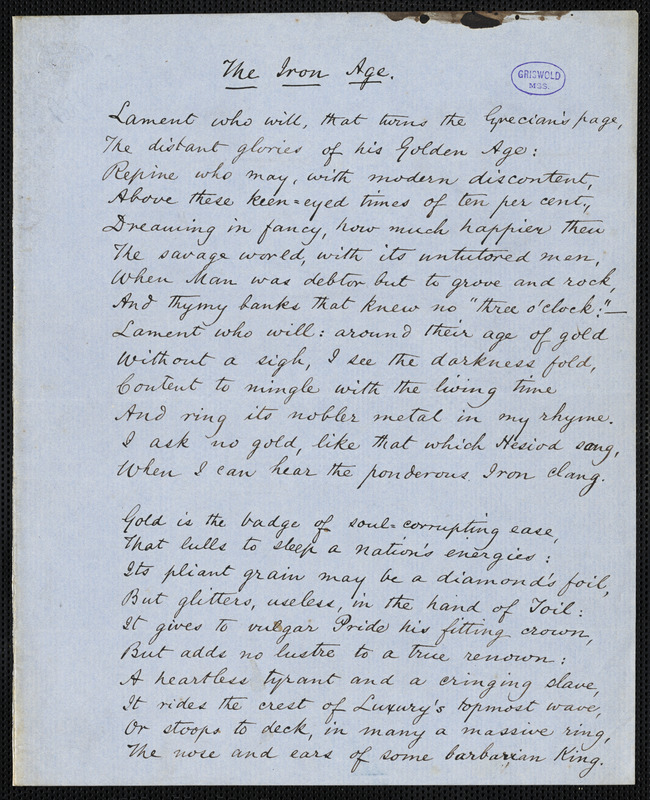 The Iron Age.
GRISWOLD
MSS.
Lament who will, that turns the Grecian's page,
The distant glories of his Golden Age:
Repine who may, with modern discontent,
Above these keen-eyed times of ten per cent,
Dreaming in fancy, how much happier then
The savage world, with its untutored men,
When Man was debtor but to grove and rock,
And thymy banks that knew no "three o'clock:"—
Lament who will: around their age of gold
Without a sigh, I see the darkness fold,
Content to mingle with the living time
And ring its nobler metal in my rhyme.
I ask no gold, like that which Hesiod sang,
When I can hear the ponderous Iron clang.
Gold is the badge of soul-corrupting ease,
That lulls to sleep a nation's energies:
Its pliant grain may be a diamond's foil,
But glitters, useless, in the hand of Toil:
It gives to vulgar Pride his fitting crown,
But adds no lustre to a true renown:
A heartless tyrant and a cringing slave,
It rides the crest of Luxury's topmost wave,
Or stoops to deck, in many a massive ring,
The nose and ears of some barbarian King.